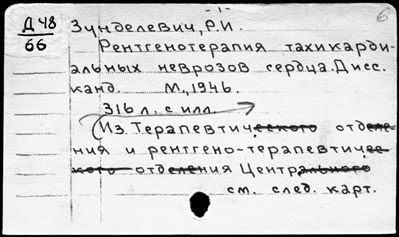 - 1 -
Д 48
66
6
Зунделевич, Р.И.
Рентгенотерапия тахикарди-
альных неврозов сердца. Дисс.
канд. М., 1946.
316 л. с илл.
(Из. Терапевтического отделе-
ния и рентгено-терапевтичес-
кого отделения Центрального
см. след. карт.